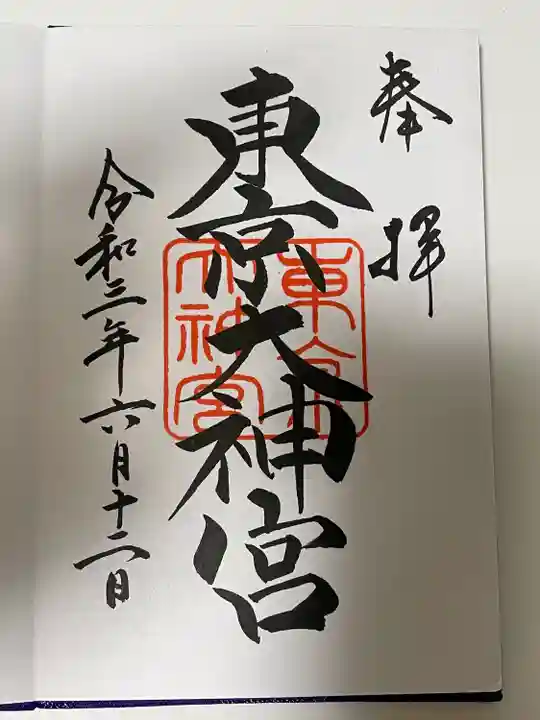 奉拝
東京大神宮
東京
大神宮
令和三年六月十二日